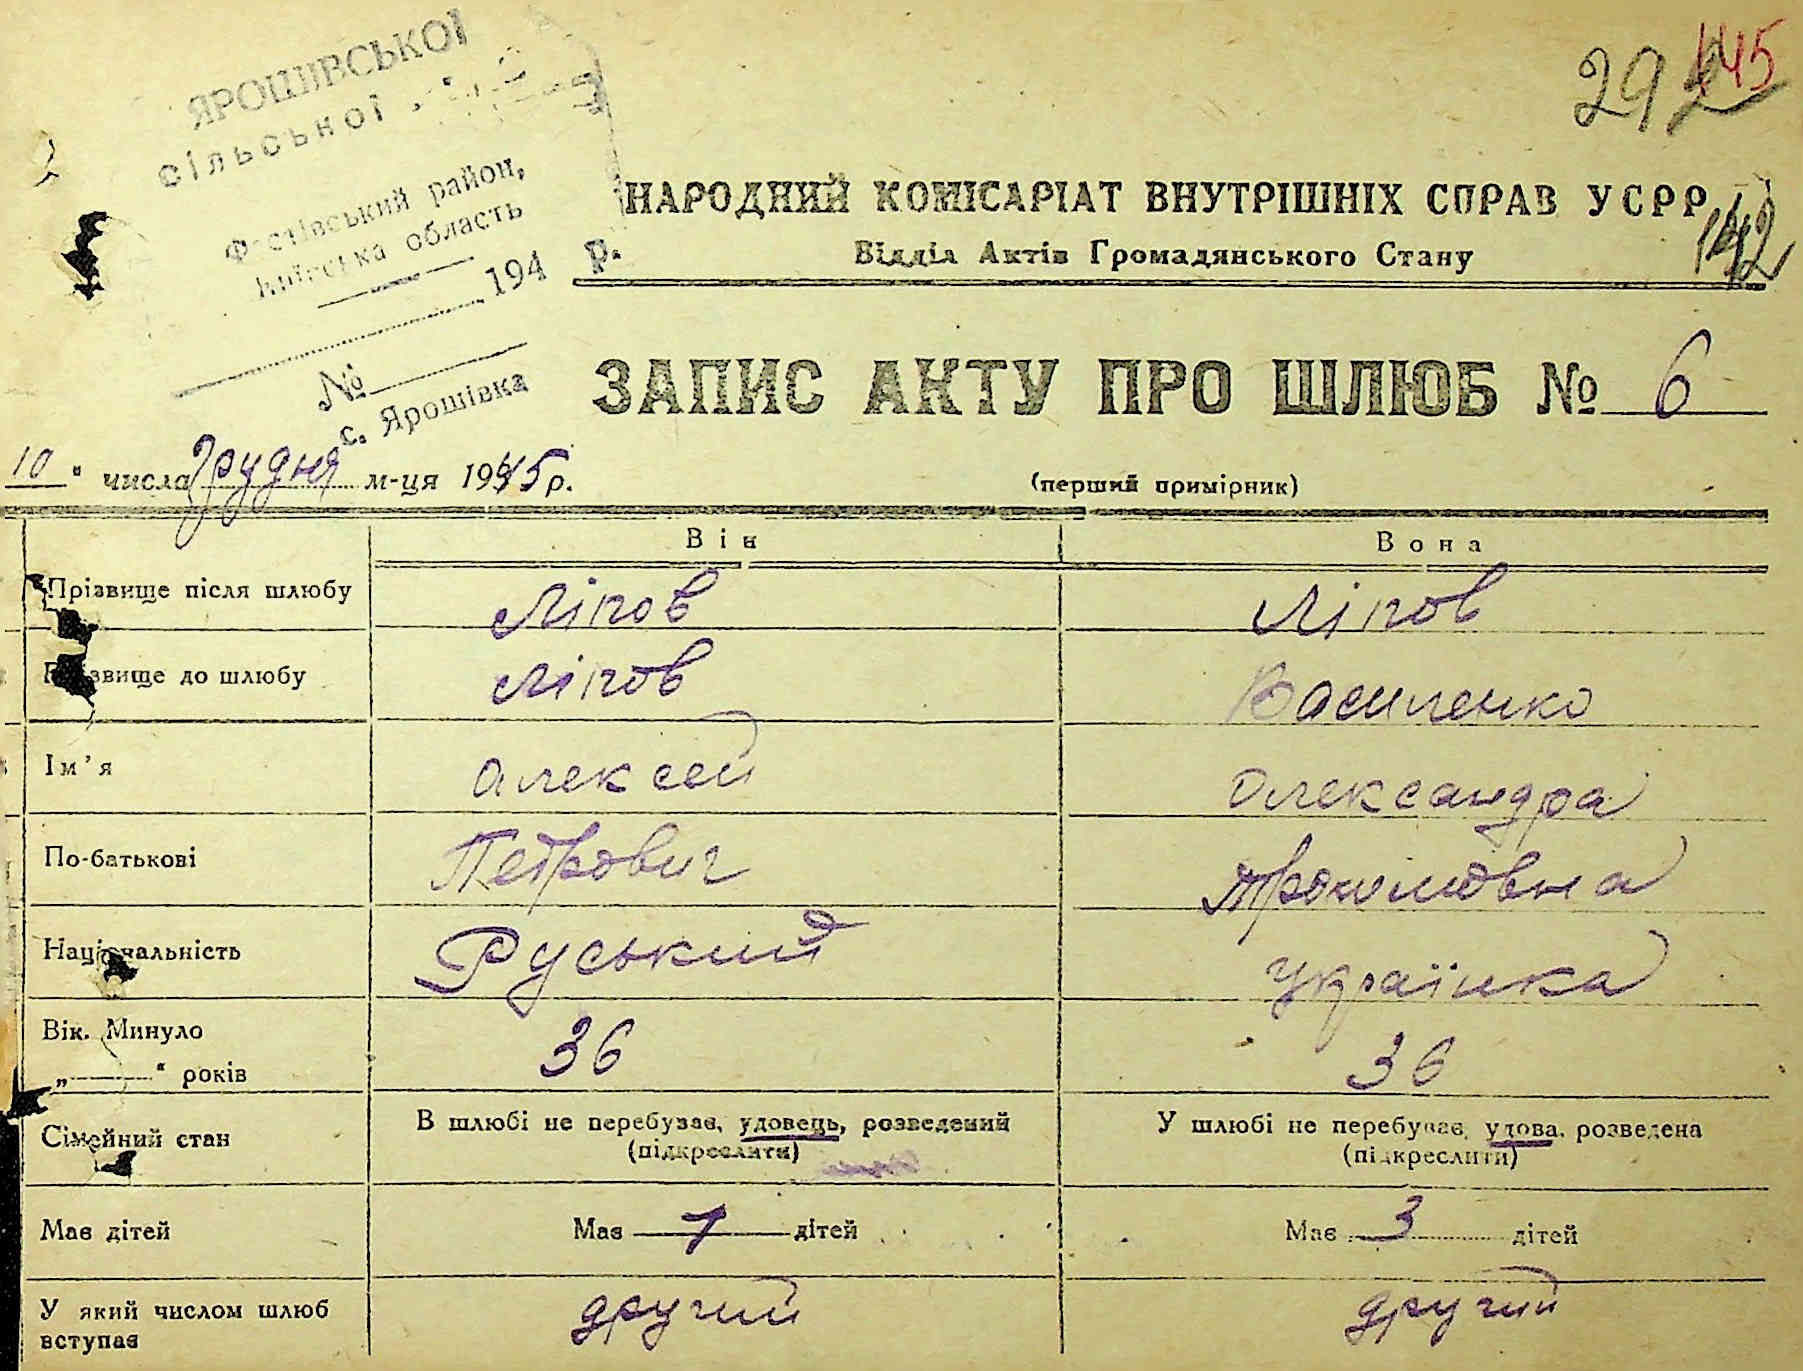 ЯРОШІВСЬКОЇ
сільської
Фастівський район,
Київська область
194 р.
№
с. Ярошівка
292
145
142
НАРОДНИЙ КОМІСАРІАТ ВНУТРІШНІХ СПРАВ УСРР
Відділ Актів Громадянського Стану
ЗАПИС АКТУ ПРО ШЛЮБ № 6
10 " числа грудня м-ця 1945 р.
(перший примірник)
Він Вона
Прізвище після шлюбу Ліпов Ліпов
Прізвище до шлюбу Ліпов Василенко
Ім'я Алексей Олександра
По-батькові Петрович
Національність Руський Українка
Вік. Минуло
„ " років 36 36
Сімейний стан В шлюбі не перебуває, удовець, розведений У шлюбі не перебуває, удова, розведена
(підкреслити) (підкреслити)
Має дітей Має 1 дітей Має 3 дітей
У який числом шлюб вступає другий другий